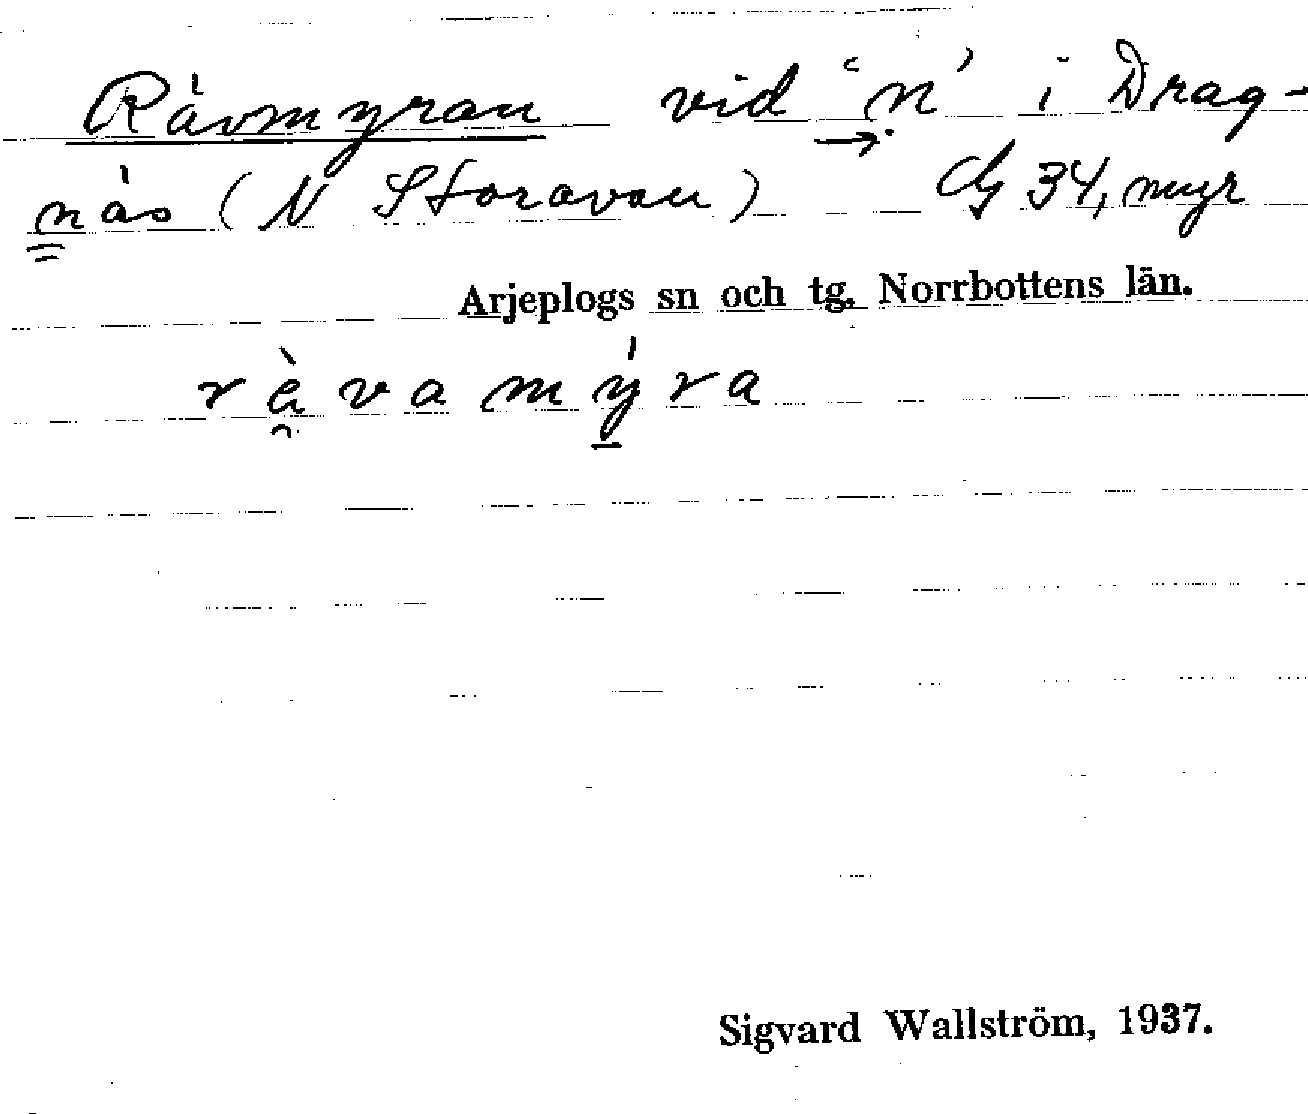 Rävmyran vid 'n' i Drag-
näs (N Storavan) G 34, myr
Arjeplogs sn och tg. Norrbottens län.
rävamýra
Sigvard Wallström, 1937.